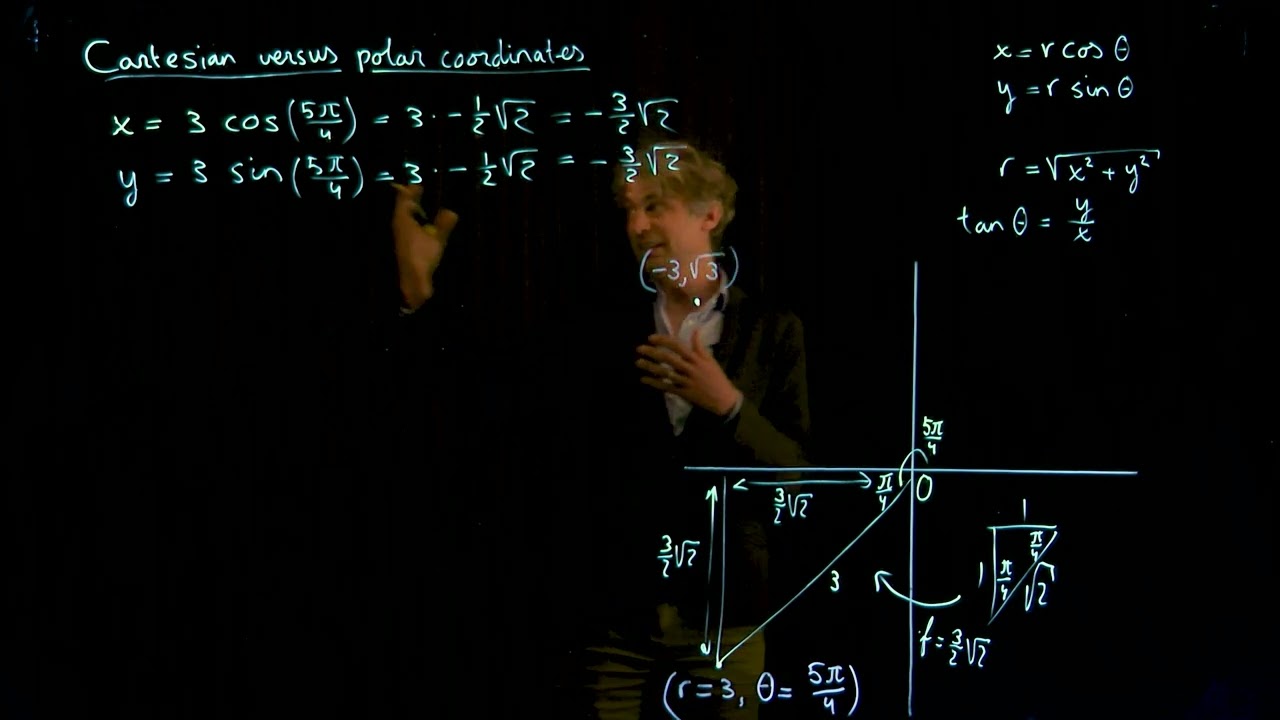 Cartesian versus polar coordinates
x = 3 cos(5π/4) = 3 · - 1/2 √2 = - 3/2 √2
y = 3 sin(5π/4) = 3 · - 1/2 √2 = - 3/2 √2
x = r cos θ
y = r sin θ
r = √(x² + y²)
tan θ = y/x
(-3, √3)
5π/4
π/4
O
3/2 √2
3/2 √2
3
1
π/4
1
π/4
√2
f = 3/2 √2
(r = 3, θ = 5π/4)